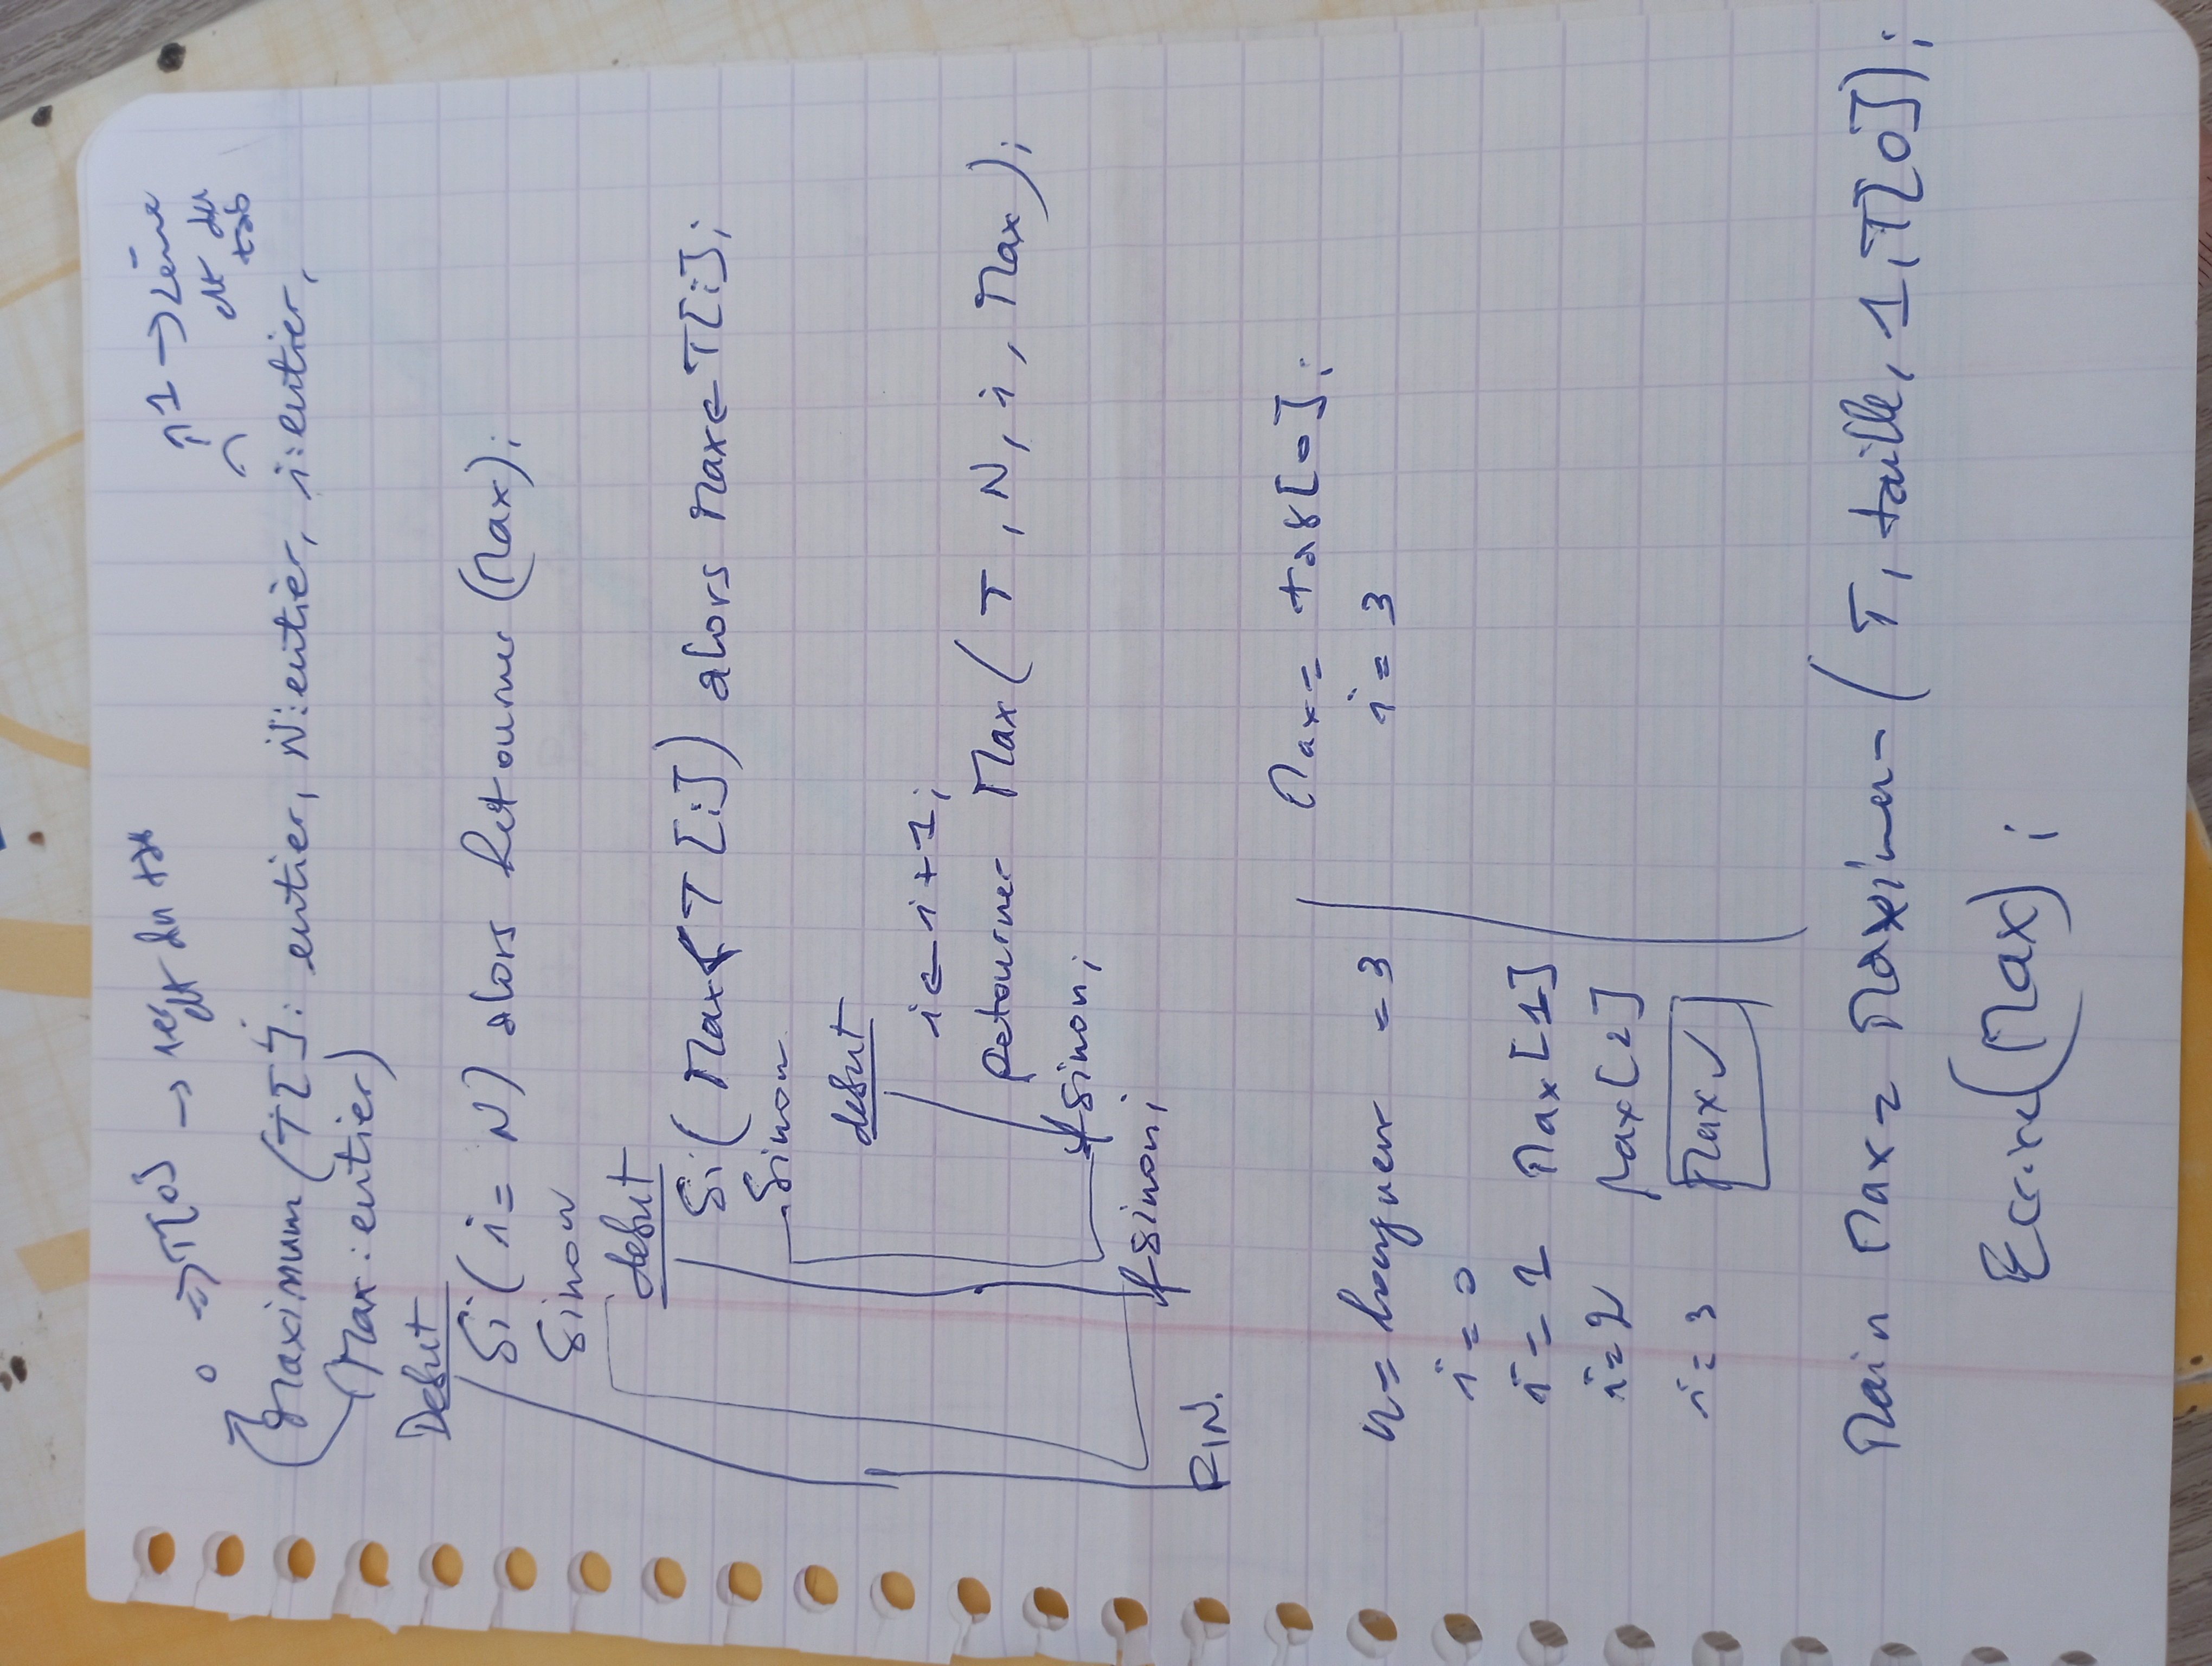 0 => T[0] → 1er elt du tab
1 → 2ème
elt du
tab
Maximum (T[]: entier, N:entier, i:entier,
Max : entier)
Debut
Si ( i = N ) alors Retourner (Max);
Sinon
debut
Si ( Max < T [i] ) alors Max ← T[i];
Sinon
debut
i ← i + 1;
Retourner Max ( T , N, i , Max );
fsinon;
fsinon;
FIN.
Max = tab[0];
n = longueur = 3
i = 3
i = 0
i = 1 Max [1]
i = 2 Max [2]
i = 3 Max ✓
Main Max = Maximum ( T, taille, 1, T[0]);
Ecrire (Max) ;